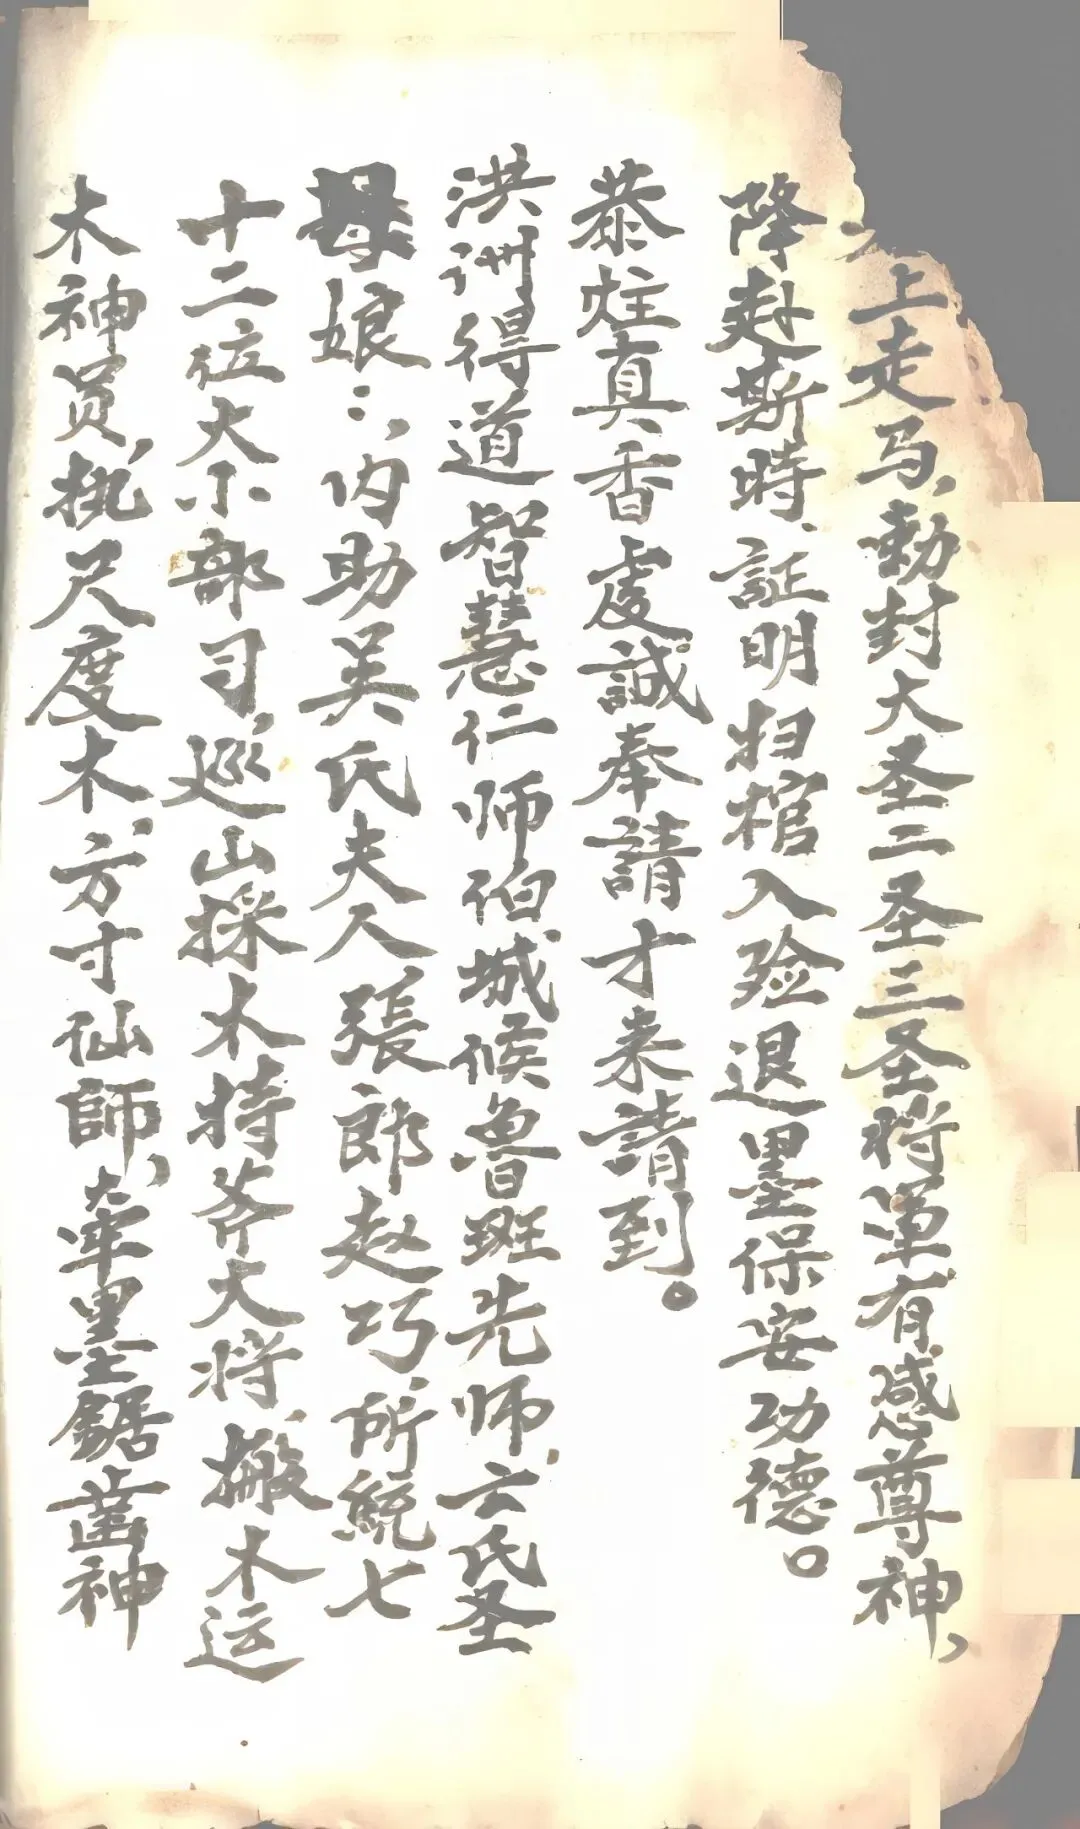 上走马,勅封大圣二圣三圣将军有感尊神,
降赴斯時、証明扫棺入殓退墨保安功德。
恭炷真香虔誠奉請才来請到。
洪洲得道智慧仁师伯,城候魯班先师,云氏圣
母娘:,内助吴氏夫人,張郎赵巧,所統七
十二位大小部司,巡山採木持斧大将,搬木运
木神员,执尺度木,方寸仙師,牵墨鋸齒神